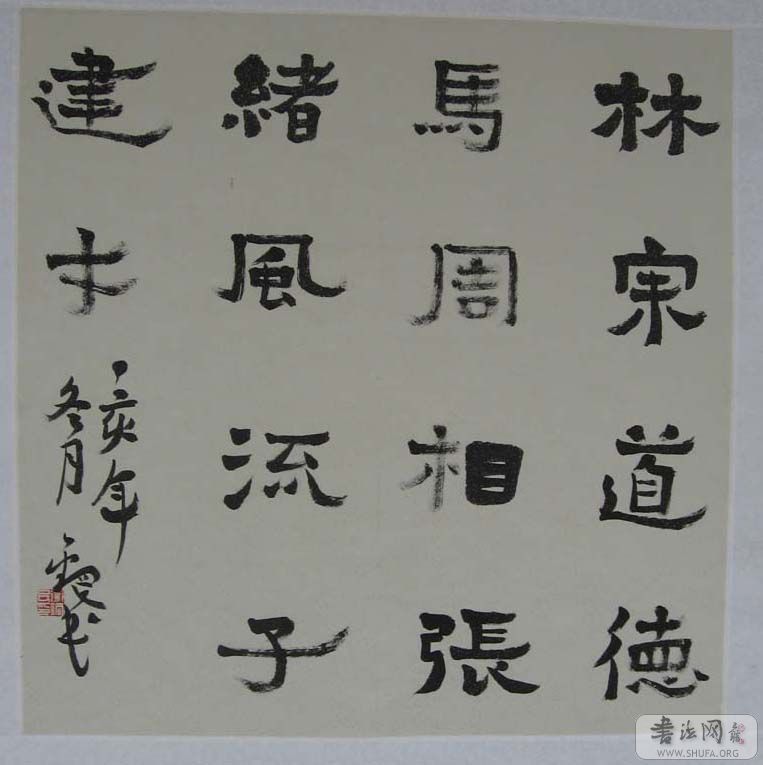 林宗道德
馬周相張
緒風流子
建才
亥年
冬月
書法网
WWW.SHUFA.ORG